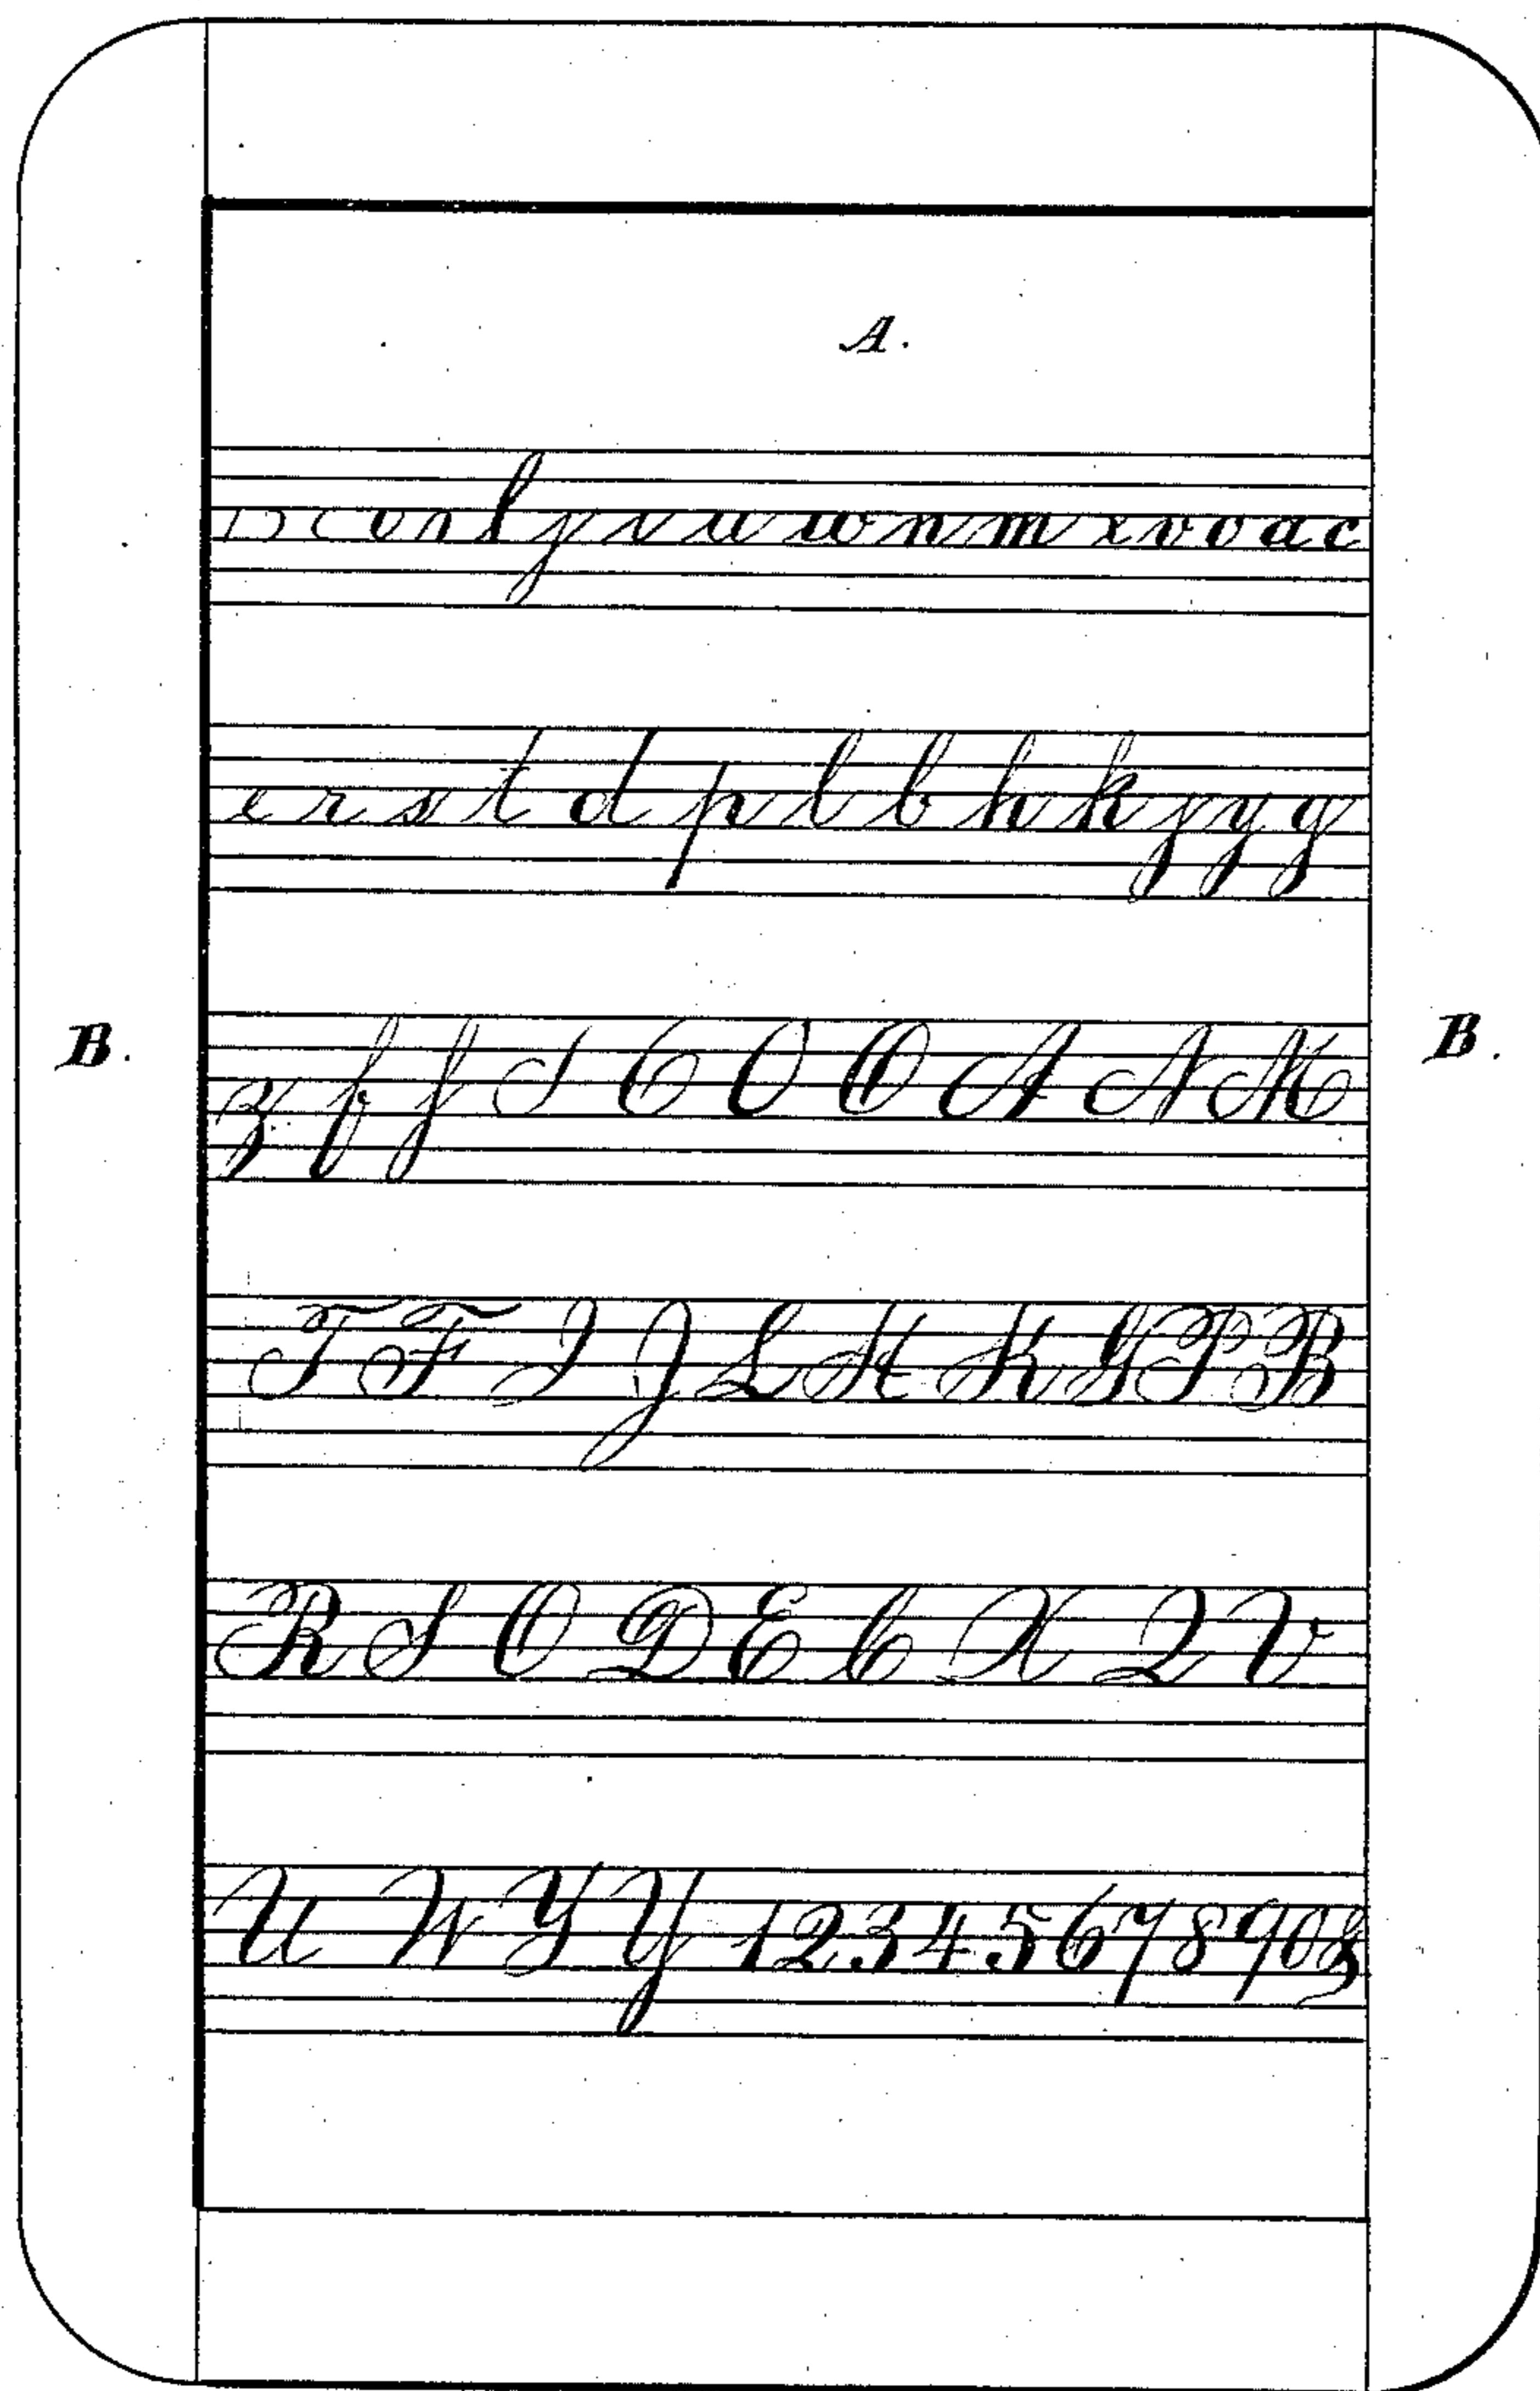 A.
i u w n m x v o a c
e r s t d p l b h k j y g
B.
z f f S C O O A N M
B.
T F I J L H K G P B
R S O D E C X Q V
U W Y Y 1 2 3 4 5 6 7 8 9 0 &